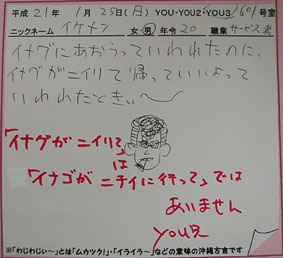 平成21年 1月25日(月) YOU・YOU2・YOU3 601号室
ニックネーム イケメン 女・男 年令20 職業 サービス業
イナグにあおうっていわれたのに、
イナグがニイリて帰っていいよって
いわれたときぃ〜
「イナグがニイリて」
は
「イナゴがニチイに行って」では
ありません
YOU兄
※「わじわじぃ〜」とは「ムカツク!」・「イライラ〜」などの意味の沖縄方言です